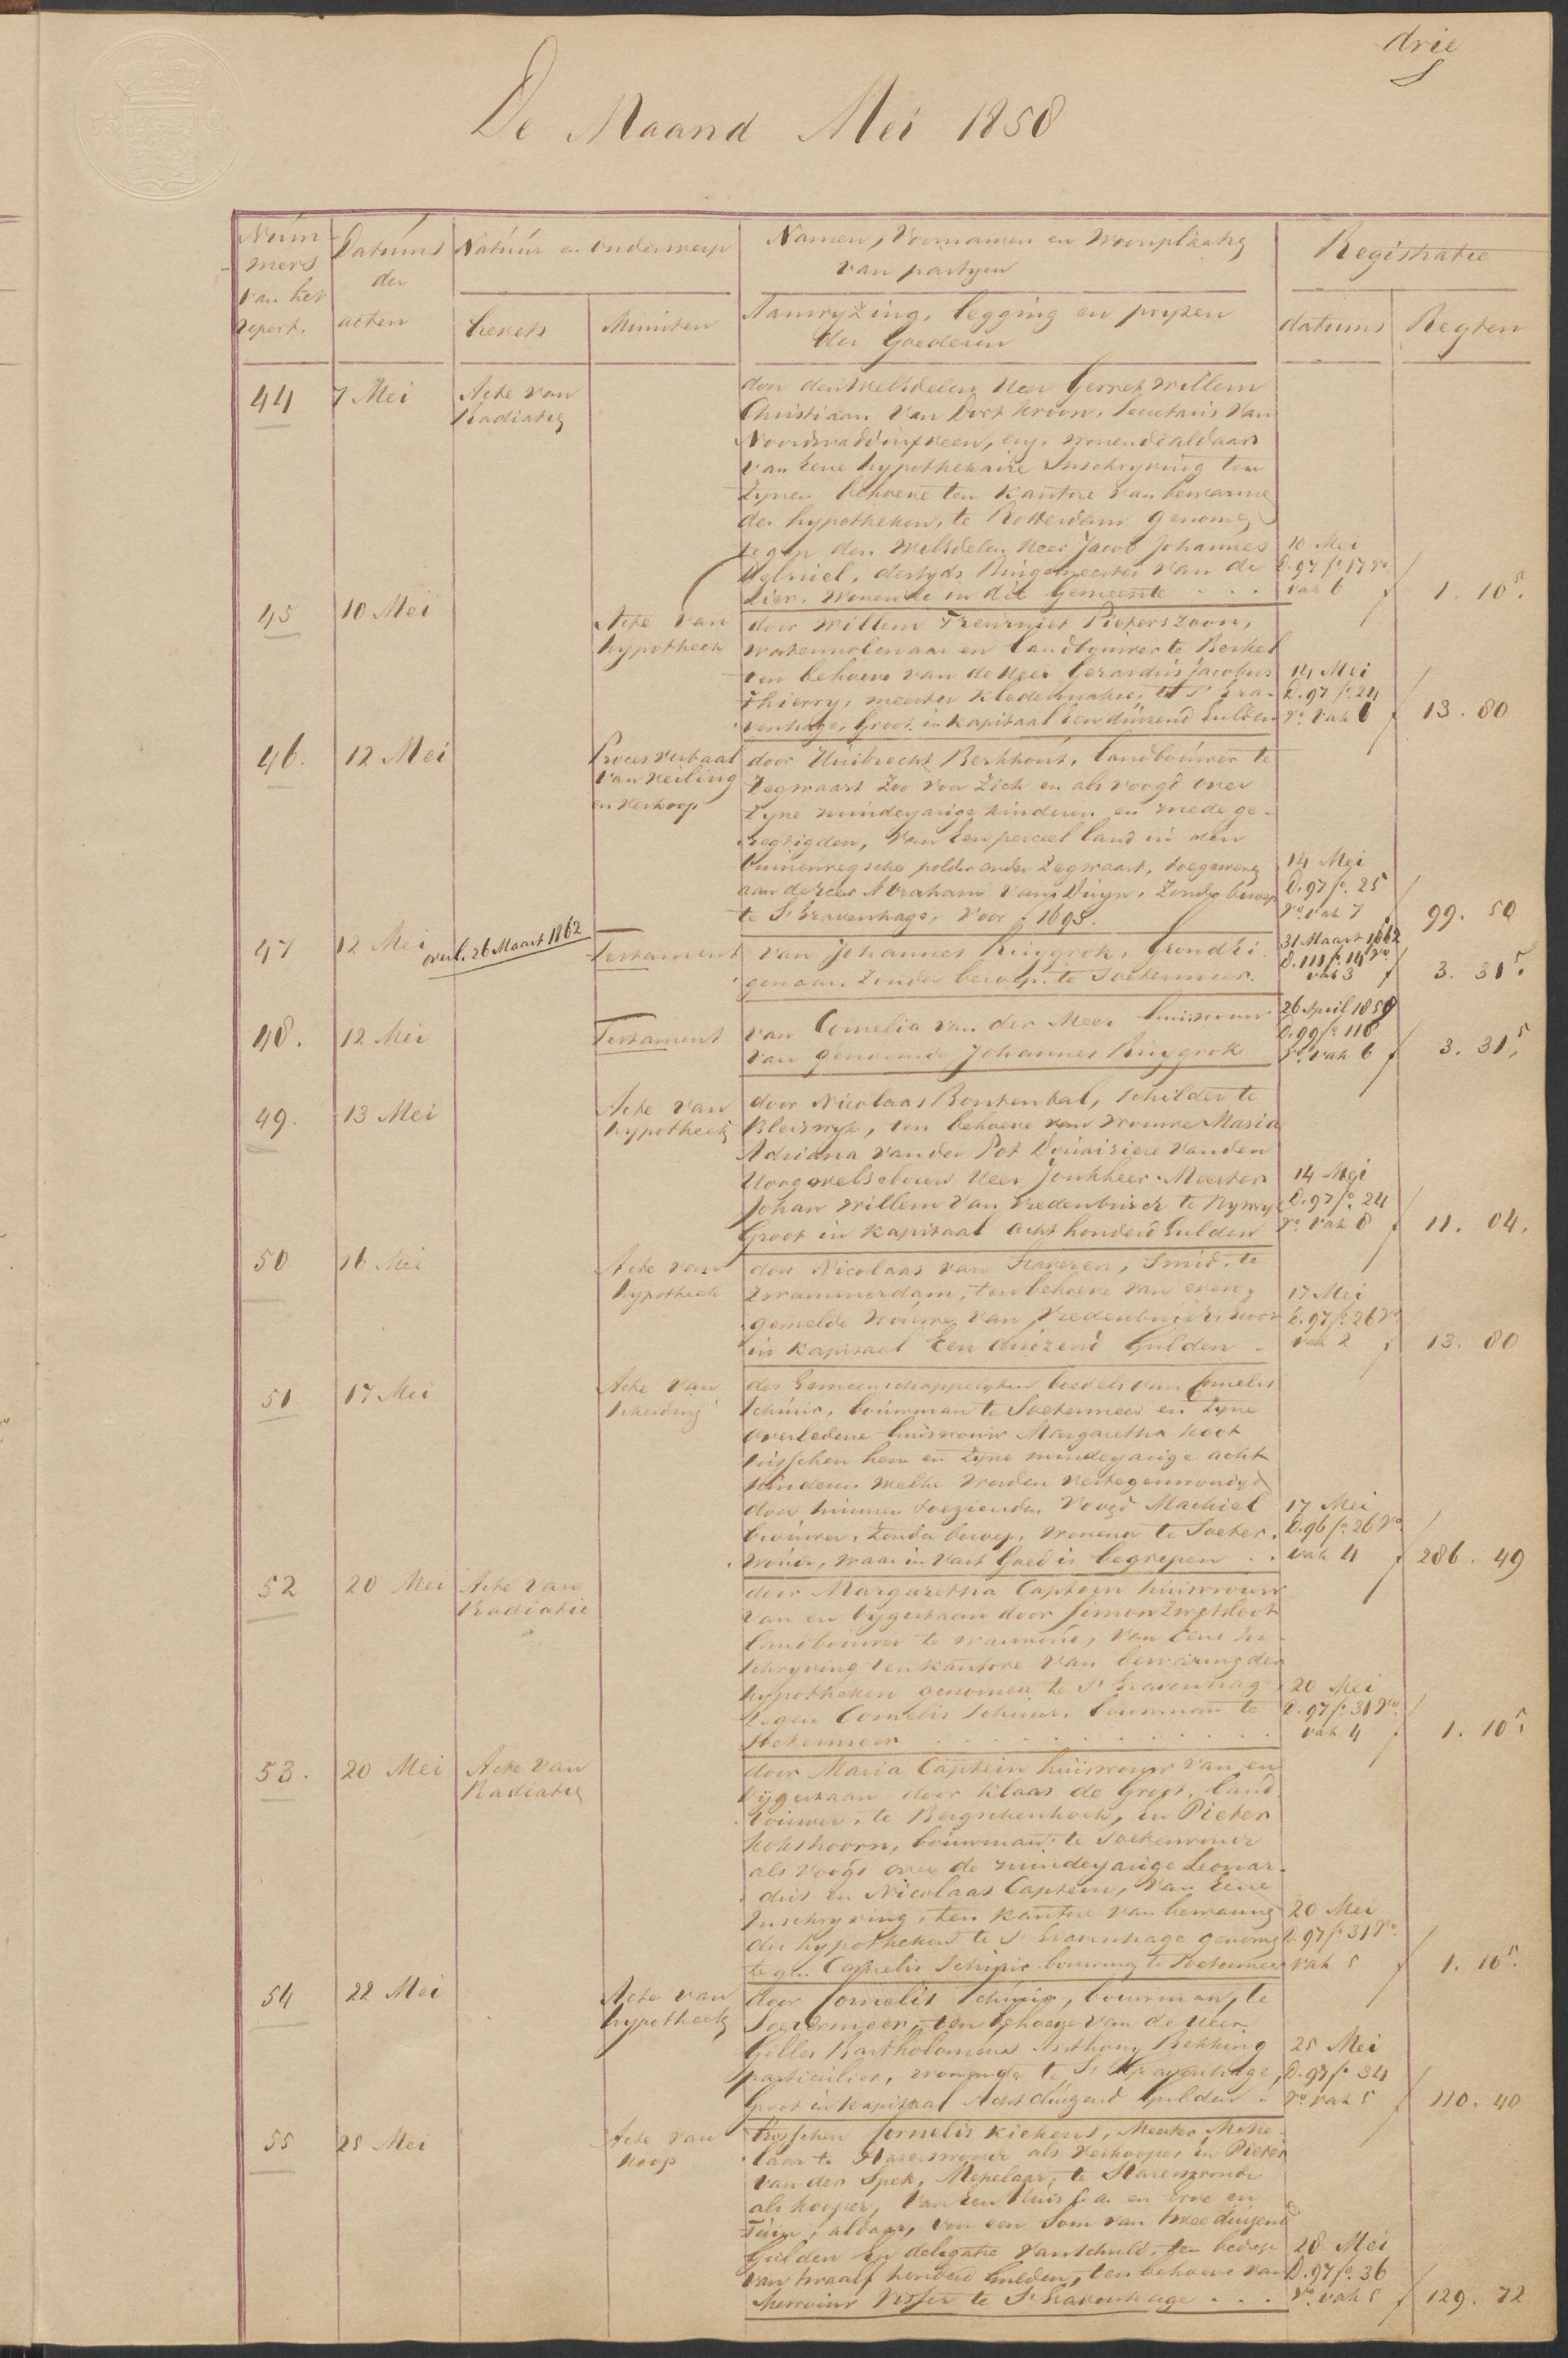 drie
De Maand Mei 1858
Num
mers
van het
repert.
Datums
der
acten
Natuur en onderwerp
brevets
Minuten
Namen, Voornamen en Woonplaats
van partyen
Aanwyzing, legging en pryzen
der Goederen
Registratie
datums
Regten
44
7 Mei
Acte van
Radiatie
door den Weledelen Heer Gerret Willem
Christiaan van Dort Kroon, Secretaris van
Noordwaddinxveen, enz. wonende aldaar
van Eene hypothekaire Inschryving ten
Zynen behoeve ten Kantore van bewaring
der hypotheken, te Rotterdam genomen
tegen den Weledelen Heer Jacob Johannes
destyds Burgemeester van de
Lier. Wonende in die Gemeente . . .
10 Mei
D. 97 fo. 17 vo.
vak 6
f 1. 10 5.
45
10 Mei
Acte van
hypotheek
door Willem Treurniet Pieterszoon,
watermolenaar en landbouwer te Berkel
ten behoeve van de Heer Gerardus Jacobus
Thierry, meester Kledermaker, te 's Gra-
venhage, Groot in Kapitaal Een duizend Gulden
14 Mei
D. 97 fo. 24
ro. vak 6
f 13. 80
46.
12 Mei
Proces verbaal
van veiling
en verkoop
door Huibrecht Berkhout, landbouwer te
Zegwaart Zoo voor Zich en als voogd over
Zyne minderjarige kinderen en mede ge-
regtigden, van Een perceel land in den
Binnenwegsche polder onder Zegwaart, toegewezen
aan de Heer Abraham van Duyn, Zonder beroep
te 's Gravenhage, voor f 1695.
14 Mei
D. 97 fo. 25
ro vak 7
f 99. 50
47
12 Mei
overl. 26 Maart 1862
Testament
van Johannes Ruygrok, Grondei
genaar, Zonder beroep, te Soetermeer.
31 Maart 1862
D. 111 fo. 14 vo
vak 3
f 3. 31 5.
48.
12 Mei
Testament
van Cornelia van der Meer huisvrouw
van genoemde Johannes Ruygrok
26 April 1859
D. 99 fo. 118
ro. vak 6
f 3. 31 5.
49.
13 Mei
Acte van
hypotheek
door Nicolaas Bontenbal, schilder te
Bleiswyk, ten behoeve van Vrouwe Maria
Adriana van der Pot Douairiere van den
Hoogwelgeboren Heer Jonkheer Meester
Johan Willem van Vredenburch te Ryswyk
Groot in Kapitaal acht honderd Gulden
14 Mei
D. 97 fo. 24
ro. vak 8
f 11. 04.
50
16 Mei
Acte van
hypotheek
door Nicolaas van Staveren, Smid, te
Zwammerdam, ten behoeve van even-
gemelde Vrouwe van Vredenburch, Groot
in Kapitaal Een duizend Gulden -
17 Mei
D. 97 fo. 26 ro
vak 2
f 13. 80
51
17 Mei
Acte van
scheiding
des Gemeenschappelyken boedels van Cornelis
Schuir, bouwman te Soetermeer en Zyne
overledene huisvrouw Margaretha Koot
tusschen hem en Zyne minderjarige acht
Kinderen welke werden vertegenwoordigd
door hunnen toezienden voogd Machiel
Brouwer, Zonder beroep, wonende te Soeter-
woude, waar in vast Goed is begrepen . .
17 Mei
D. 96 fo. 26 vo.
vak 4
f 286. 49
52
20 Mei
Acte van
Radiatie
door Margaretha Captein huisvrouw
van en bygestaan door Simon Zwetsloot
landbouwer te Warmond, van Eene In-
schryving ten kantore van bewaring der
hypotheken genomen te 's Gravenhage
tegen Cornelis Schuir, bouwman te
Soetermeer . . . . . . . .
20 Mei
D. 97 fo. 31 vo.
vak 4
f 1. 10 5.
53.
20 Mei
Acte van
Radiatie
door Maria Captein huisvrouw van en
bygestaan door Klaas de Groot, land-
bouwer, te Bergschenhoek, en Pieter
Kokshoorn, bouwman, te Soeterwoude
als voogd over de minderjarige Leonar-
dus en Nicolaas Captein, van Eene
Inschryving, ten kantore van bewaring
der hypotheken te 's Gravenhage genomen
tegen Cornelis Schuir bouwman te Soetermeer
20 Mei
D. 97 fo. 31 vo.
vak 5
f 1. 10 5.
54
22 Mei
Acte van
hypotheek
door Cornelis Schuir, bouwman, te
Soetermeer, ten behoeve van de Heer
Gilles Bartholomeus Anthony Bekking
particulier, wonende te 's Gravenhage,
Groot in Kapitaal Acht duizend Gulden .
25 Mei
D. 97 fo. 34
ro vak 5
f 110. 40
55
25 Mei
Acte van
Koop
tusschen Cornelis Kiekens, Meester Metse-
laar te Hazerswoude als verkooper en Pieter
van der Spek, Metzelaar, te Hazerswoude
als kooper, van Een Huis c.a. en erve en
Tuin, aldaar, voor een Som van twee duizend
Gulden en delegatie van schuld, ten bedrage
van twaalf honderd Gulden, ten behoeve van
Mevrouw Visser te 's Gravenhage . . .
28 Mei
D. 97 fo. 36
vo. vak 5
f 129. 72